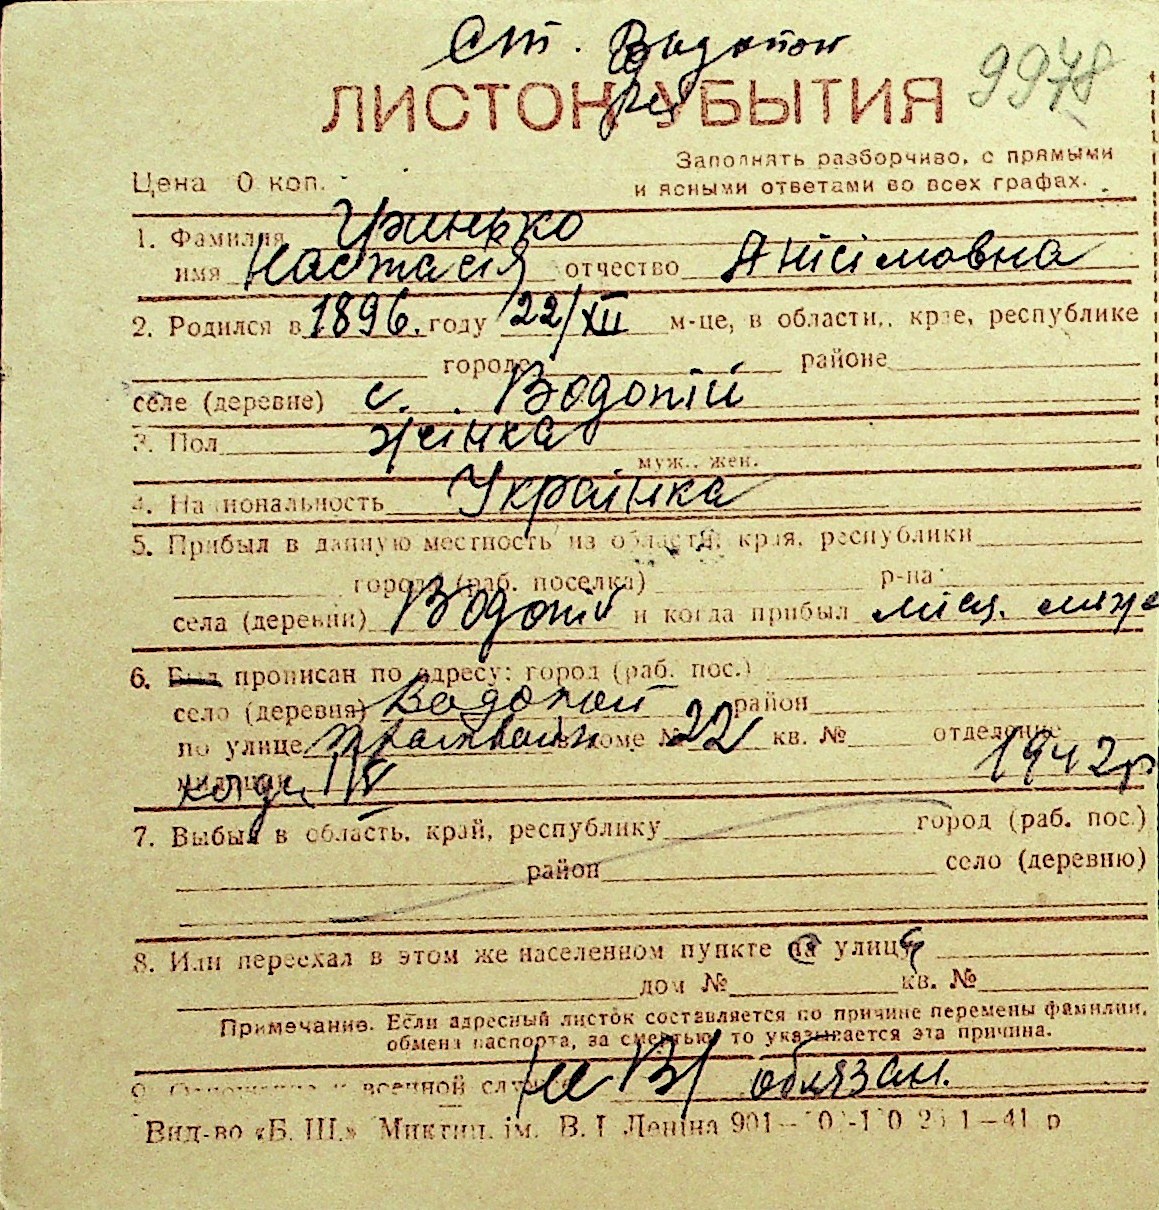 Ст. Водопой
ЛИСТОК УБЫТИЯ 9978
Заполнять разборчиво, с прямыми
Цена 0 коп. и ясными ответами во всех графах.
1. Фамилия Гринько
имя Настасія отчество Анісімовна
2. Родился в 1896. году 22/XII м-це, в области, крае, республике
городе районе
селе (деревне) с. Водопій
3. Пол жінка
муж., жен.
4. Национальность Українка
5. Прибыл в данную местность из области, края, республики
города (раб. поселка) р-на
села (деревни) Водопій и когда прибыл місц. меже
6. Был прописан по адресу: город (раб. пос.)
село (деревня) Водопой район
по улице доме № 22 кв. № отделение
милиции когда 1/V 1942 р
7. Выбыл в область, край, республику город (раб. пос.)
район село (деревню)
8. Или переехал в этом же населенном пункте на улицу
дом № кв. №
Примечание. Если адресный листок составляется по причине перемены фамилии,
обмена паспорта, за смертью, то указывается эта причина.
9. Отношение к военной службе /не В/ обязан.
Вид-во «Б. Ш.» Микт ім. В. І Леніна 901 1—41 р